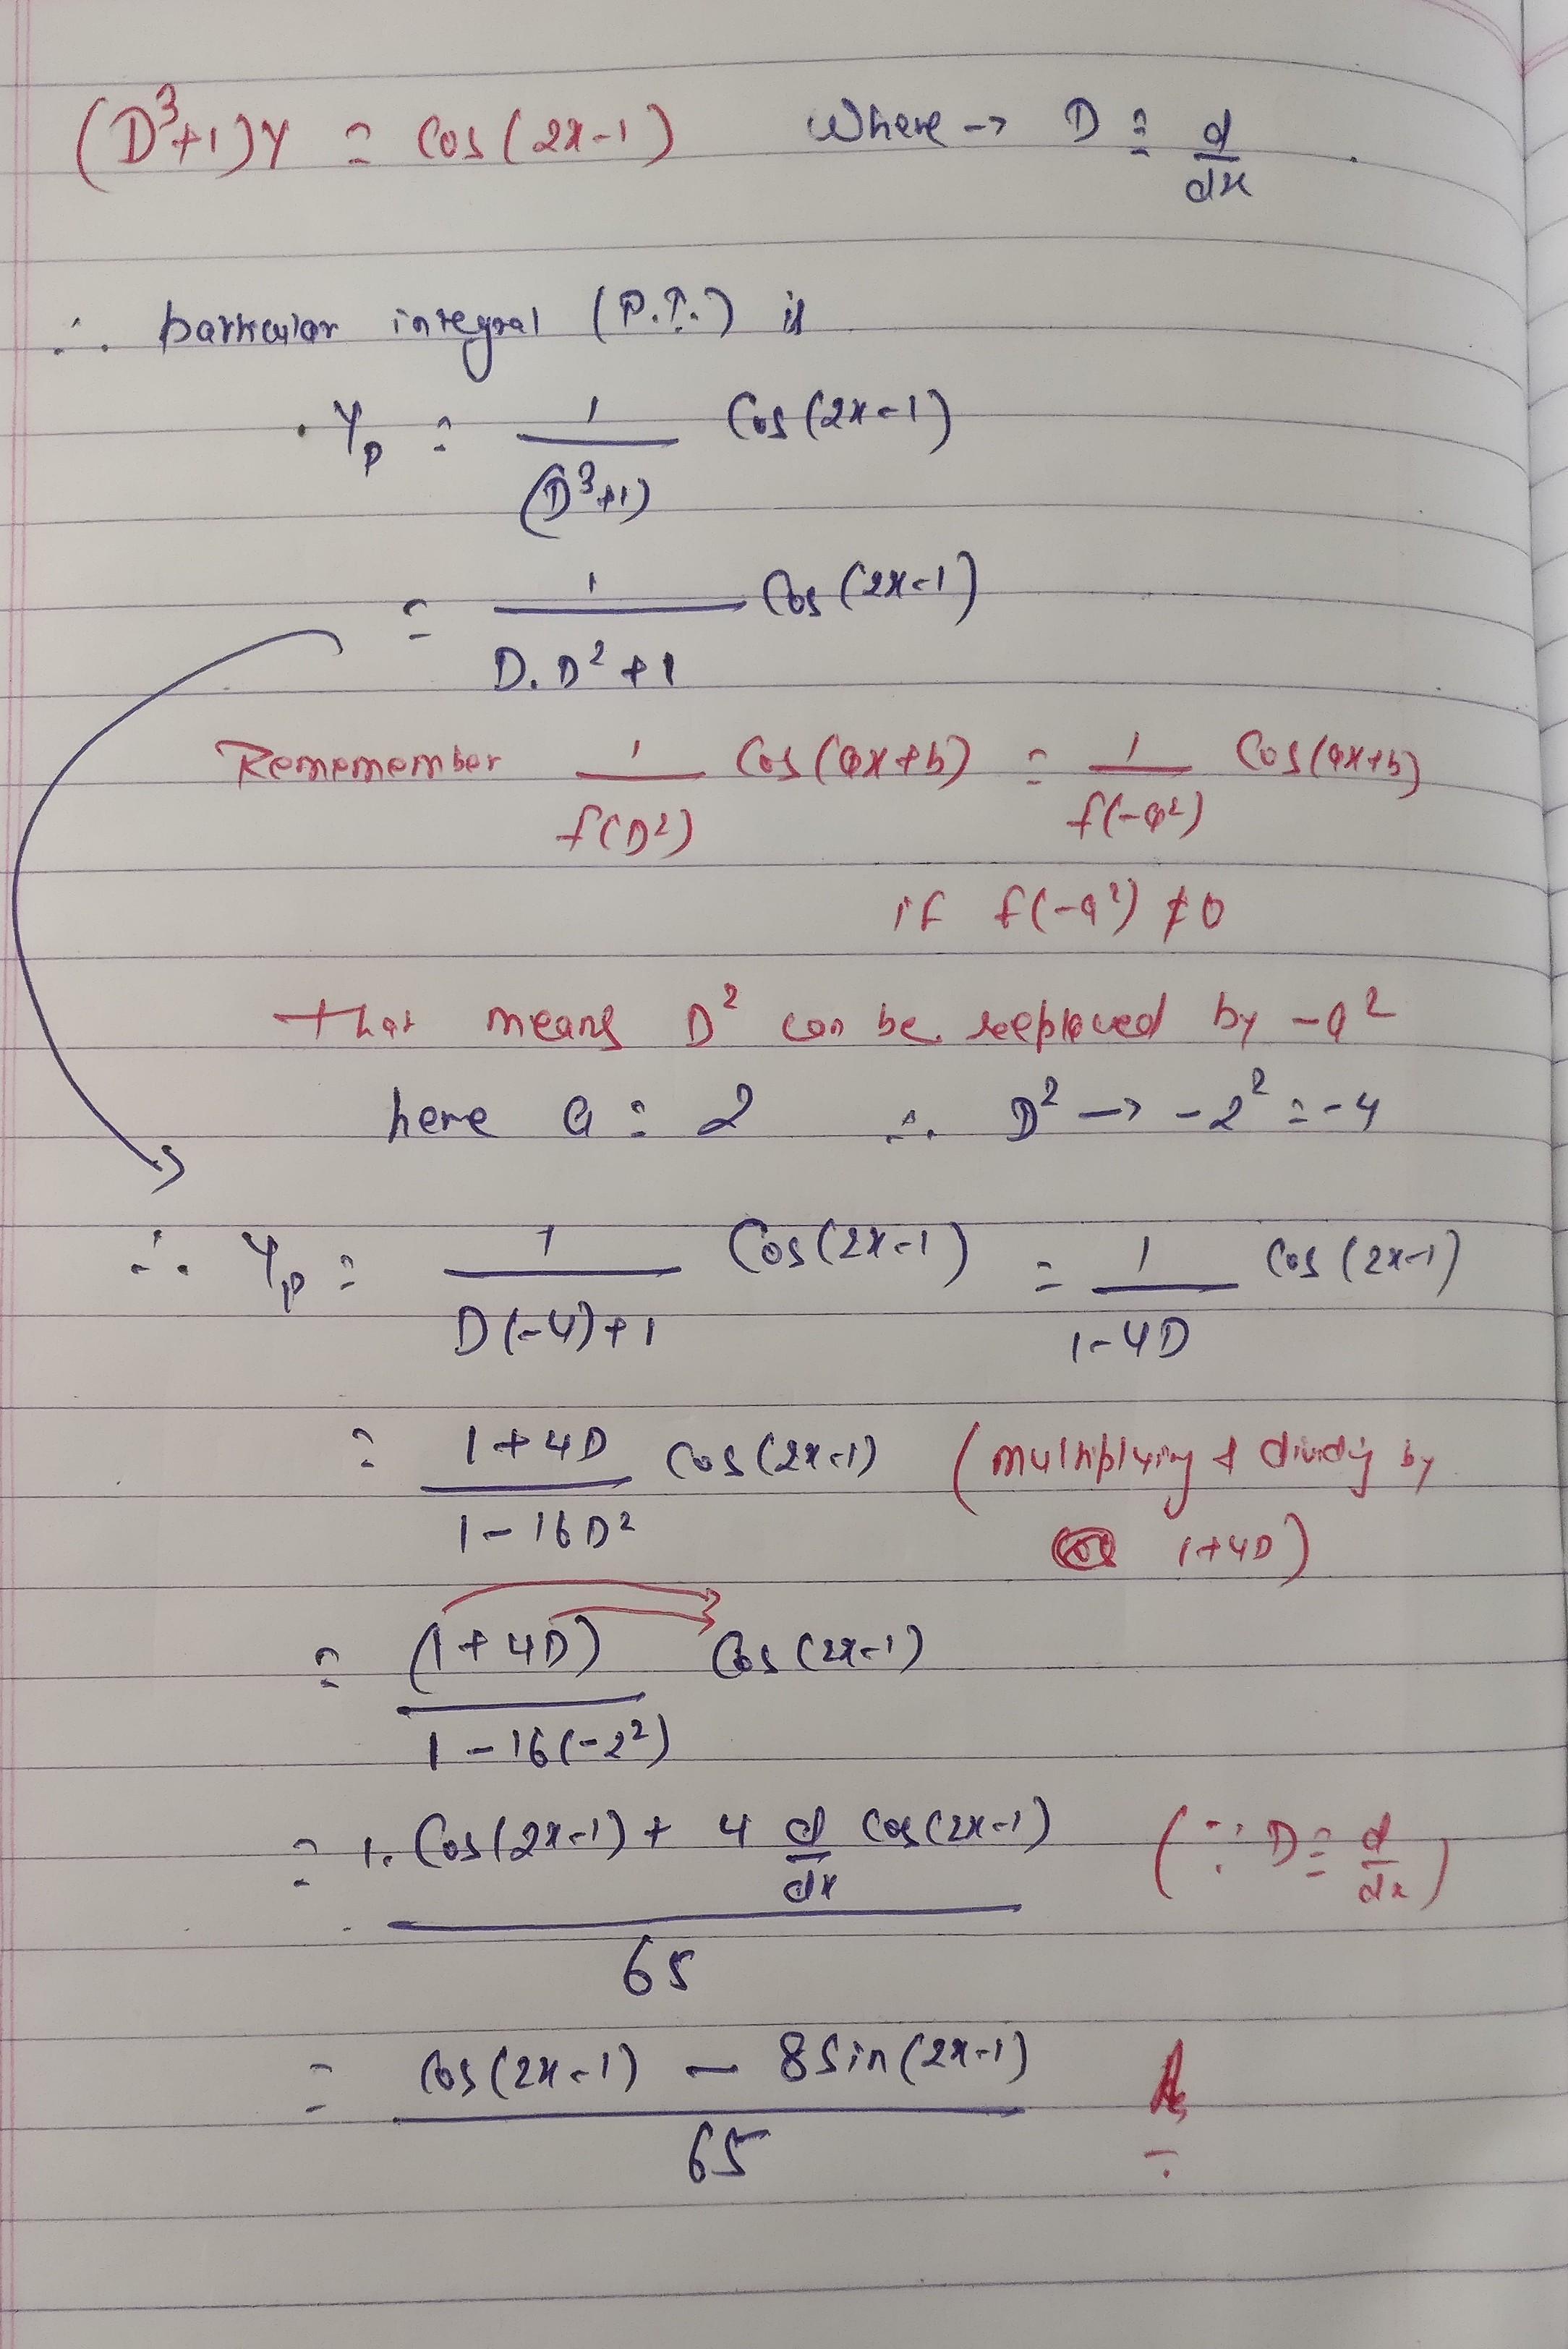 (D³+1)Y = Cos(2x-1) Where → D ≡ d/dx
∴ particular integral (P.I.) is
Yp = 1/(D³+1) Cos(2x-1)
= 1/(D.D²+1) Cos(2x-1)
Rememember 1/f(D²) Cos(ax+b) = 1/f(-a²) Cos(ax+b)
if f(-a²) ≠ 0
that means D² can be replaced by -a²
here a = 2 ∴ D² → -2² = -4
∴ Yp = 1/(D(-4)+1) Cos(2x-1) = 1/(1-4D) Cos(2x-1)
= (1+4D)/(1-16D²) Cos(2x-1) (multiplying & dividing by
1+4D)
= (1+4D)/(1-16(-2²)) Cos(2x-1)
= (1. Cos(2x-1) + 4 d/dx Cos(2x-1))/65 (∵ D ≡ d/dx)
= (Cos(2x-1) - 8Sin(2x-1))/65